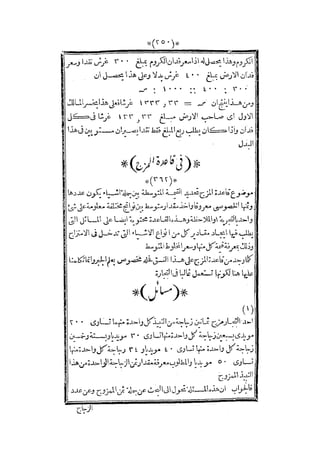 *(٢٥٠)*
الكروم وهذا يحصل له اذا سعر فدان الكروم بمبلغ ٣٠٠ غرش نقدا وسعر
فدان الارض بمبلغ ٤٠٠ غرش بدلا وعلى هذا يحصل ان
٣٠٠ : ٤٠٠ :: ١٠٠٠ : س
ومن هذا ينتج ان س = ١٣٣٣,٣٣ غرشا فعلى هذا يخسر المالك
الاول اى صاحب الارض مبلغ ٣٣,٣٣ غرشا فى كل
فدان واذا كان يطلب ربع المبلغ فقط نقدا يصيران مستويين فى هذا
البدل
*(فى قاعدة المزج)*
*(٣٦٢)*
موضوع قاعدة المزج تحديد القيمة المتوسطة بين جملة اشياء يكون عددها
وثمنها الخصوصى معروفا واخذ مقدار متوسط بين نواتج مختلفة معلومة على شئ
واحد بالتجربة او الملاحظة وهذه القاعدة محتوية ايضا على المسائل التى
يطلب فيها ايجاد مقادير كل من انواع الاشياء التى تدخل فى الامتزاج
وذلك بمعرفة قيمة كل منها وسعر المخلوط المتوسط
كما وجد من قاعدة المزج على هذا النسق فحله مخصوص بعلم الجبر وانما تكلمنا
عليها هنا لكونها تستعمل غالبا فى التجارة
*(مسائل)*
(١)
احد التجار مزج ثمانين زجاجة من النبيذ كل واحدة منها تساوى ٢٠٠
مويدى بسبعين زجاجة كل واحدة منها تساوى ٣٠ مويديا وبستة وخمسين
زجاجة كل واحدة منها تساوى ٤٠ مويديا و ٣٤ زجاجة كل واحدة منها
تساوى ٥٠ مويديا والمطلوب معرفة مقدار ثمن الزجاجة الواحدة من هذا
النبيذ الممزوج
فالجواب ان هذه المسئلة تحول الى البحث عن جملة ثمن الممزوج وعن عدد
الزجاج